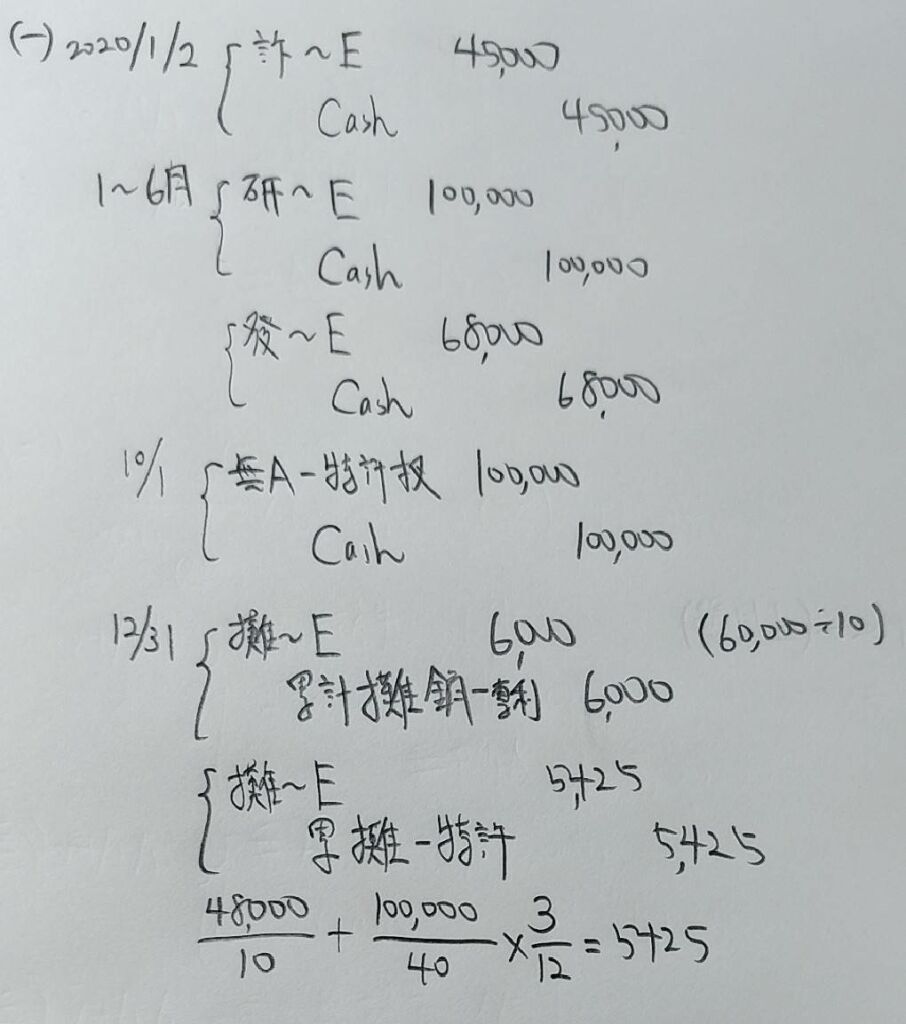 (一) 2020/1/2 { 許~E 45,000
Cash 45,000
1~6月 { 研~E 100,000
Cash 100,000
{ 發~E 68,000
Cash 68,000
10/1 { 無A-特許权 100,000
Cash 100,000
12/31 { 攤~E 6,000 (60,000÷10)
累計攤銷-專利 6,000
{ 攤~E 5,425
累攤-特許 5,425
48,000/10 + 100,000/40 × 3/12 = 5425